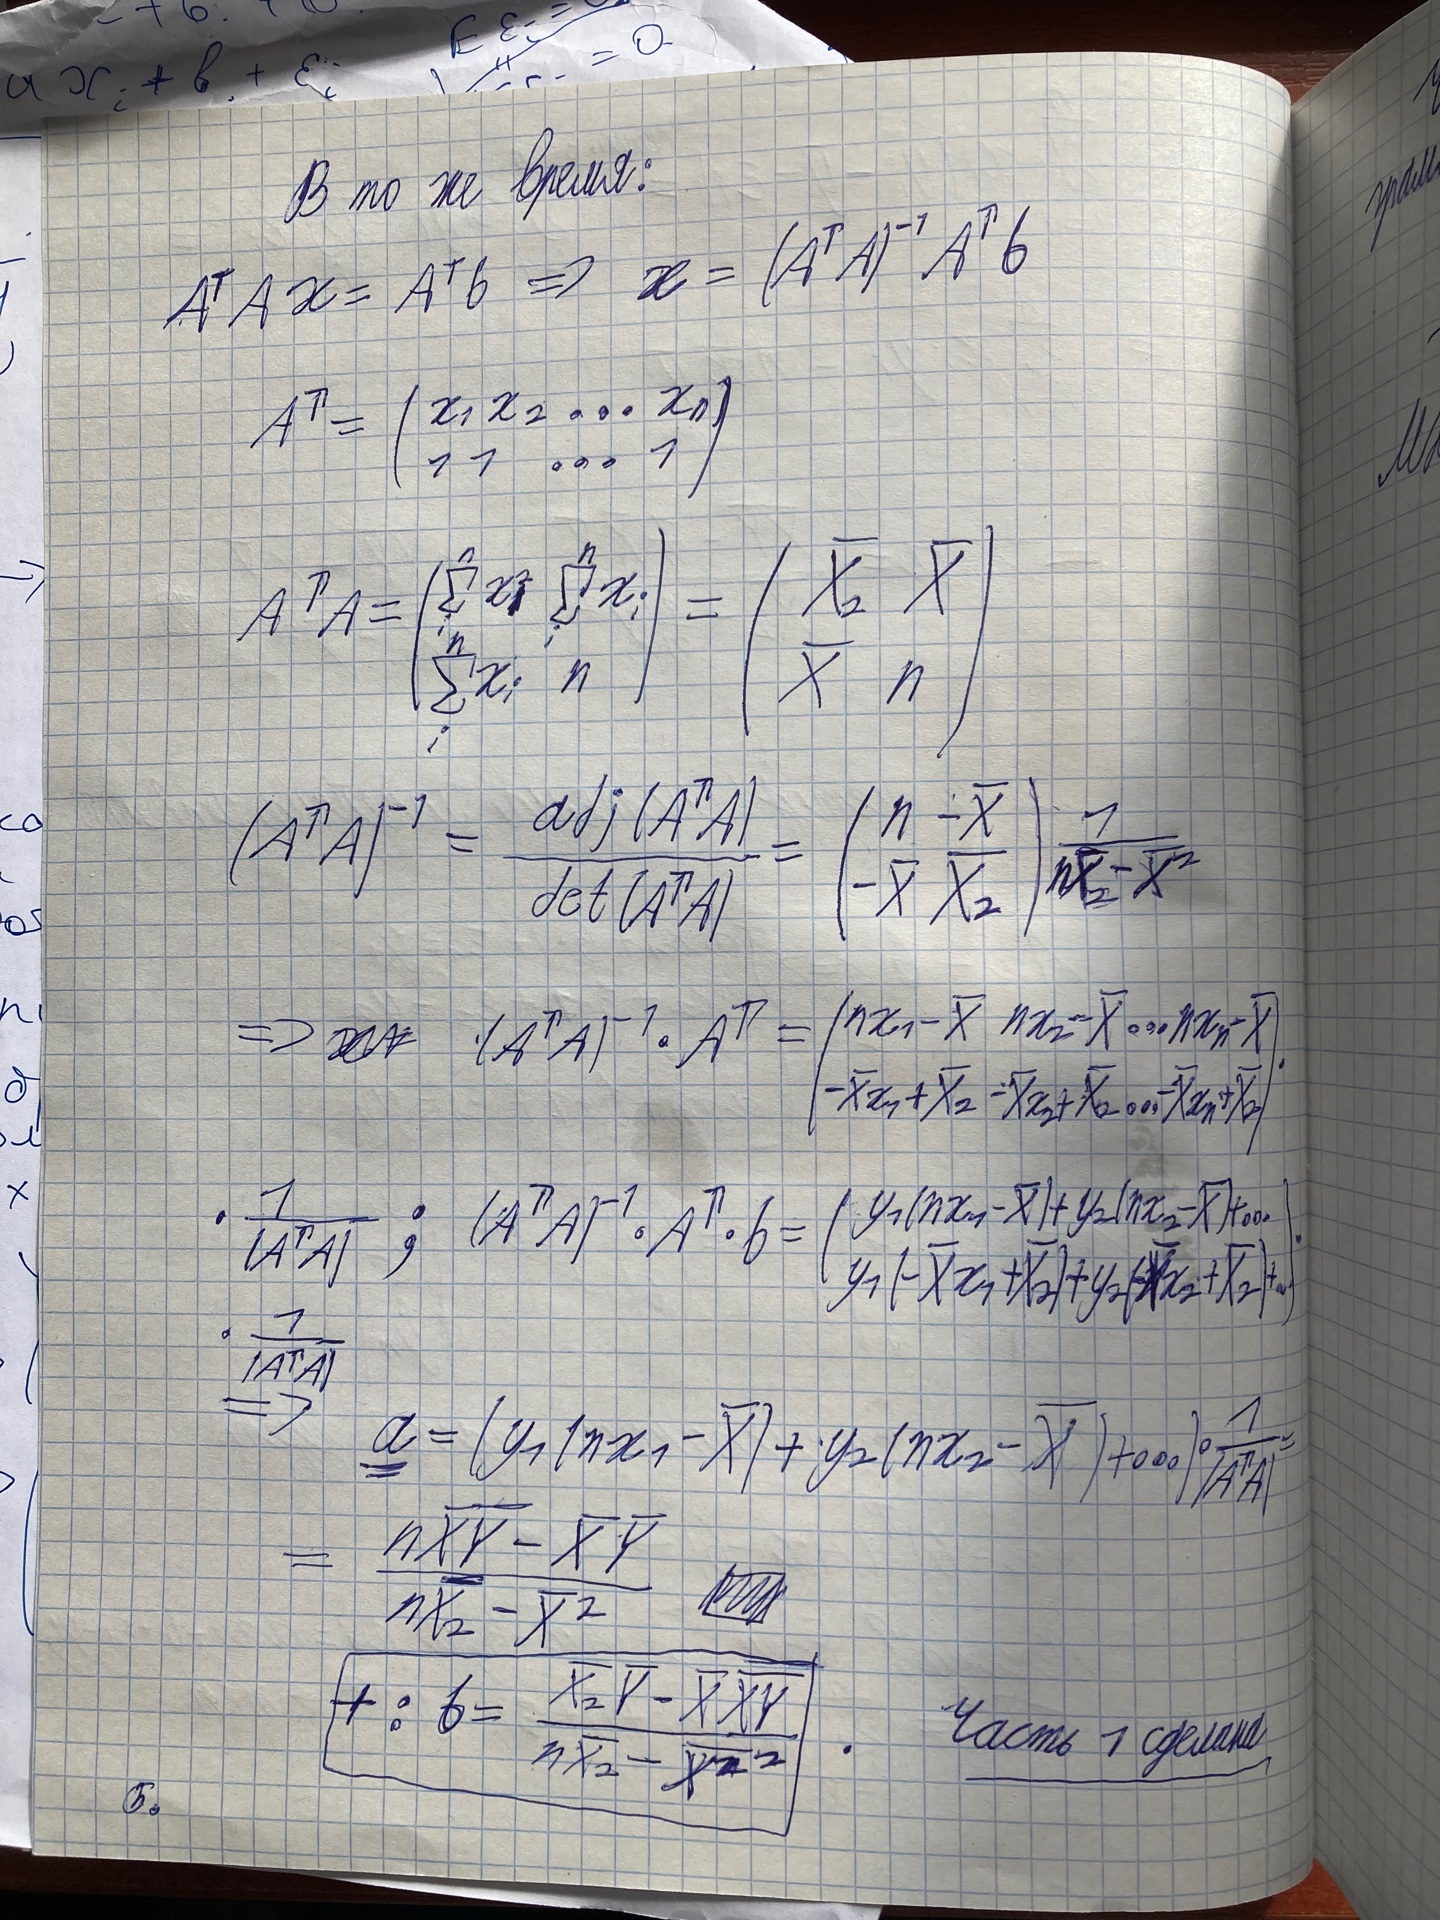 a x_i + b + ε_i
В то же время:
A^T A x = A^T b ⇒ x = (A^T A)^{-1} A^T b
A^T = (x_1 x_2 ... x_n
1 1 ... 1)
A^T A = (∑_i^n x_i^2 ∑_i^n x_i
∑_i^n x_i n) = (X̅_2 X̅
X̅ n)
(A^T A)^{-1} = adj(A^T A) / det(A^T A) = (n -X̅
-X̅ X̅_2) 1 / (nX̅_2 - X̅^2)
⇒ (A^T A)^{-1} · A^T = (nx_1 - X̅ nx_2 - X̅ ... nx_n - X̅
-X̅x_1 + X̅_2 -X̅x_2 + X̅_2 ... -X̅x_n + X̅_2) ·
· 1 / |A^T A| ; (A^T A)^{-1} · A^T · b = (y_1(nx_1 - X̅) + y_2(nx_2 - X̅) + ...
y_1(-X̅x_1 + X̅_2) + y_2(-X̅x_2 + X̅_2) + ...) ·
· 1 / |A^T A|
⇒
a = (y_1(nx_1 - X̅) + y_2(nx_2 - X̅) + ...) · 1 / |A^T A| =
= (nX̅Y̅ - X̅ Y̅) / (nX̅_2 - X̅^2)
+ : b = (X̅_2 Y̅ - X̅ X̅Y̅) / (nX̅_2 - X̅^2) . Часть 1 сделана
Б.